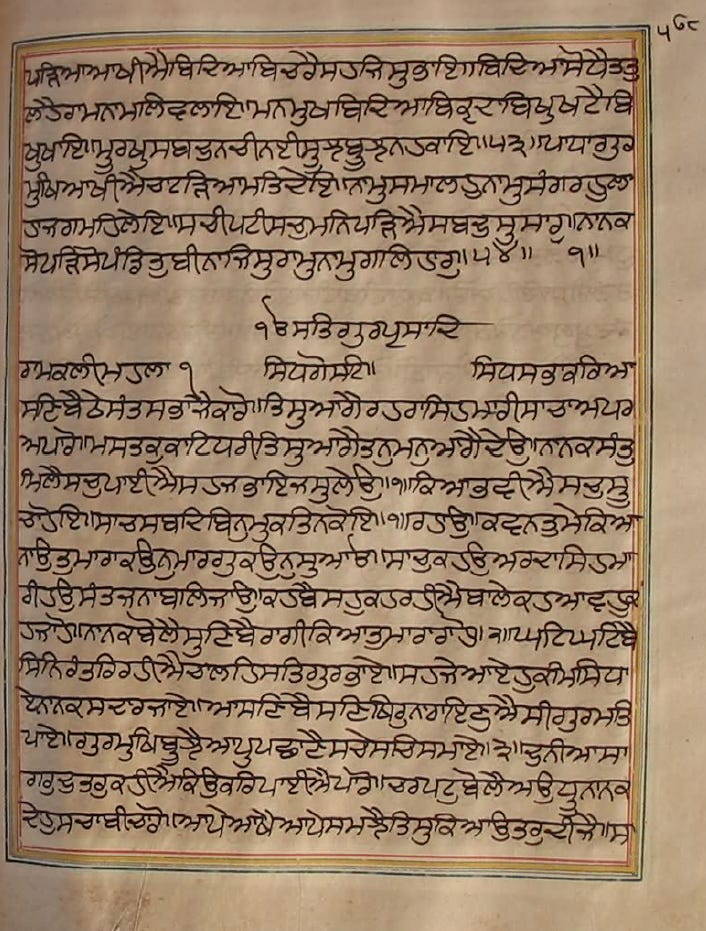 ੫੬੮
ਪੜਿਆ ਆਖੀਐ ਬਿਦਿਆ ਬਿਚਰੈ ਸਹਜਿ ਸੁਭਾਇ॥ਬਿਦਿਆ ਸੋਧੈ ਤਤੁ
ਲਹੈ ਰਾਮ ਨਾਮ ਲਿਵ ਲਾਇ॥ਮਨਮੁਖੁ ਬਿਦਿਆ ਬਿਕ੍ਰਦਾ ਬਿਖੁ ਖਟੈ ਬਿ
ਖੁ ਖਾਇ॥ਮੂਰਖੁ ਸਬਦੁ ਨ ਚੀਨਈ ਸੂਝ ਬੂਝ ਨਹ ਕਾਇ॥੫੩॥ਪਾਧਾ ਗੁਰ
ਮੁਖਿ ਆਖੀਐ ਚਾਟੜਿਆ ਮਤਿ ਦੇਇ॥ਨਾਮੁ ਸਮਾਲਹੁ ਨਾਮੁ ਸੰਗਰਹੁ ਲਾ
ਹਾ ਜਗ ਮਹਿ ਲੇਇ॥ਸਚੀ ਪਟੀ ਸਚੁ ਮਨਿ ਪੜਿਐ ਸਬਦੁ ਸੁ ਸਾਰੁ॥ਨਾਨਕ
ਸੋ ਪੜਿ ਸੋ ਪੰਡਿਤੁ ਬੀਨਾ ਜਿਸੁ ਰਾਮ ਨਾਮੁ ਗਲਿ ਹਾਰੁ॥੫੪॥ ੧॥
੧ੳ ਸਤਿਗੁਰ ਪ੍ਰਸਾਦਿ
ਰਾਮਕਲੀ ਮਹਲਾ ੧ ਸਿਧ ਗੋਸਟਿ॥ ਸਿਧ ਸਭਾ ਕਰਿ ਆ
ਸਣਿ ਬੈਠੇ ਸੰਤ ਸਭਾ ਜੈਕਾਰੋ॥ਤਿਸੁ ਆਗੈ ਰਹਰਾਸਿ ਹਮਾਰੀ ਸਾਚਾ ਅਪਰ
ਅਪਾਰੋ॥ਮਸਤਕੁ ਕਾਟਿ ਧਰੀ ਤਿਸੁ ਆਗੈ ਤਨੁ ਮਨੁ ਆਗੈ ਦੇਉ॥ਨਾਨਕ ਸੰਤੁ
ਮਿਲੈ ਸਚੁ ਪਾਈਐ ਸਹਜ ਭਾਇ ਜਸੁ ਲੇਉ॥੧॥ਕਿਆ ਭਵੀਐ ਸਚੁ ਸੂ
ਚਾ ਹੋਇ॥ਸਾਚ ਸਬਦਿ ਬਿਨੁ ਮੁਕਤਿ ਨ ਕੋਇ॥੧॥ਰਹਾਉ॥ਕਵਨ ਤੁਮੇ ਕਿਆ
ਨਾਉ ਤੁਮਾਰਾ ਕਉਨੁ ਮਾਰਗੁ ਕਉਨੁ ਸੁਆਓ॥ਸਾਚੁ ਕਹਉ ਅਰਦਾਸਿ ਹਮਾ
ਰੀ ਹਉ ਸੰਤ ਜਨਾ ਬਲਿ ਜਾਓ॥ਕਹ ਬੈਸਹੁ ਕਹ ਰਹੀਐ ਬਾਲੇ ਕਹ ਆਵਹੁ ਕ
ਹ ਜਾਹੋ॥ਨਾਨਕੁ ਬੋਲੈ ਸੁਣਿ ਬੈਰਾਗੀ ਕਿਆ ਤੁਮਾਰਾ ਰਾਹੋ॥੨॥ਘਟਿ ਘਟਿ ਬੈ
ਸਿ ਨਿਰੰਤਰਿ ਰਹੀਐ ਚਾਲਹਿ ਸਤਿਗੁਰ ਭਾਏ॥ਸਹਜੇ ਆਏ ਹੁਕਮਿ ਸਿਧਾ
ਏ ਨਾਨਕ ਸਦਾ ਰਜਾਏ॥ਆਸਣਿ ਬੈਸਣਿ ਥਿਰੁ ਨਾਰਾਇਣੁ ਐਸੀ ਗੁਰਮਤਿ
ਪਾਏ॥ਗੁਰਮੁਖਿ ਬੂਝੈ ਆਪੁ ਪਛਾਣੈ ਸਚੇ ਸਚਿ ਸਮਾਏ॥੩॥ਦੁਨੀਆ ਸਾ
ਗਰੁ ਦੁਤਰੁ ਕਹੀਐ ਕਿਉ ਕਰਿ ਪਾਈਐ ਪਾਰੋ॥ਚਰਪਟੁ ਬੋਲੈ ਅਉਧੂ ਨਾਨਕ
ਦੇਹੁ ਸਚਾ ਬੀਚਾਰੋ॥ਆਪੇ ਆਖੈ ਆਪੇ ਸਮਝੈ ਤਿਸੁ ਕਿਆ ਉਤਰੁ ਦੀਜੈ॥ਸਾ